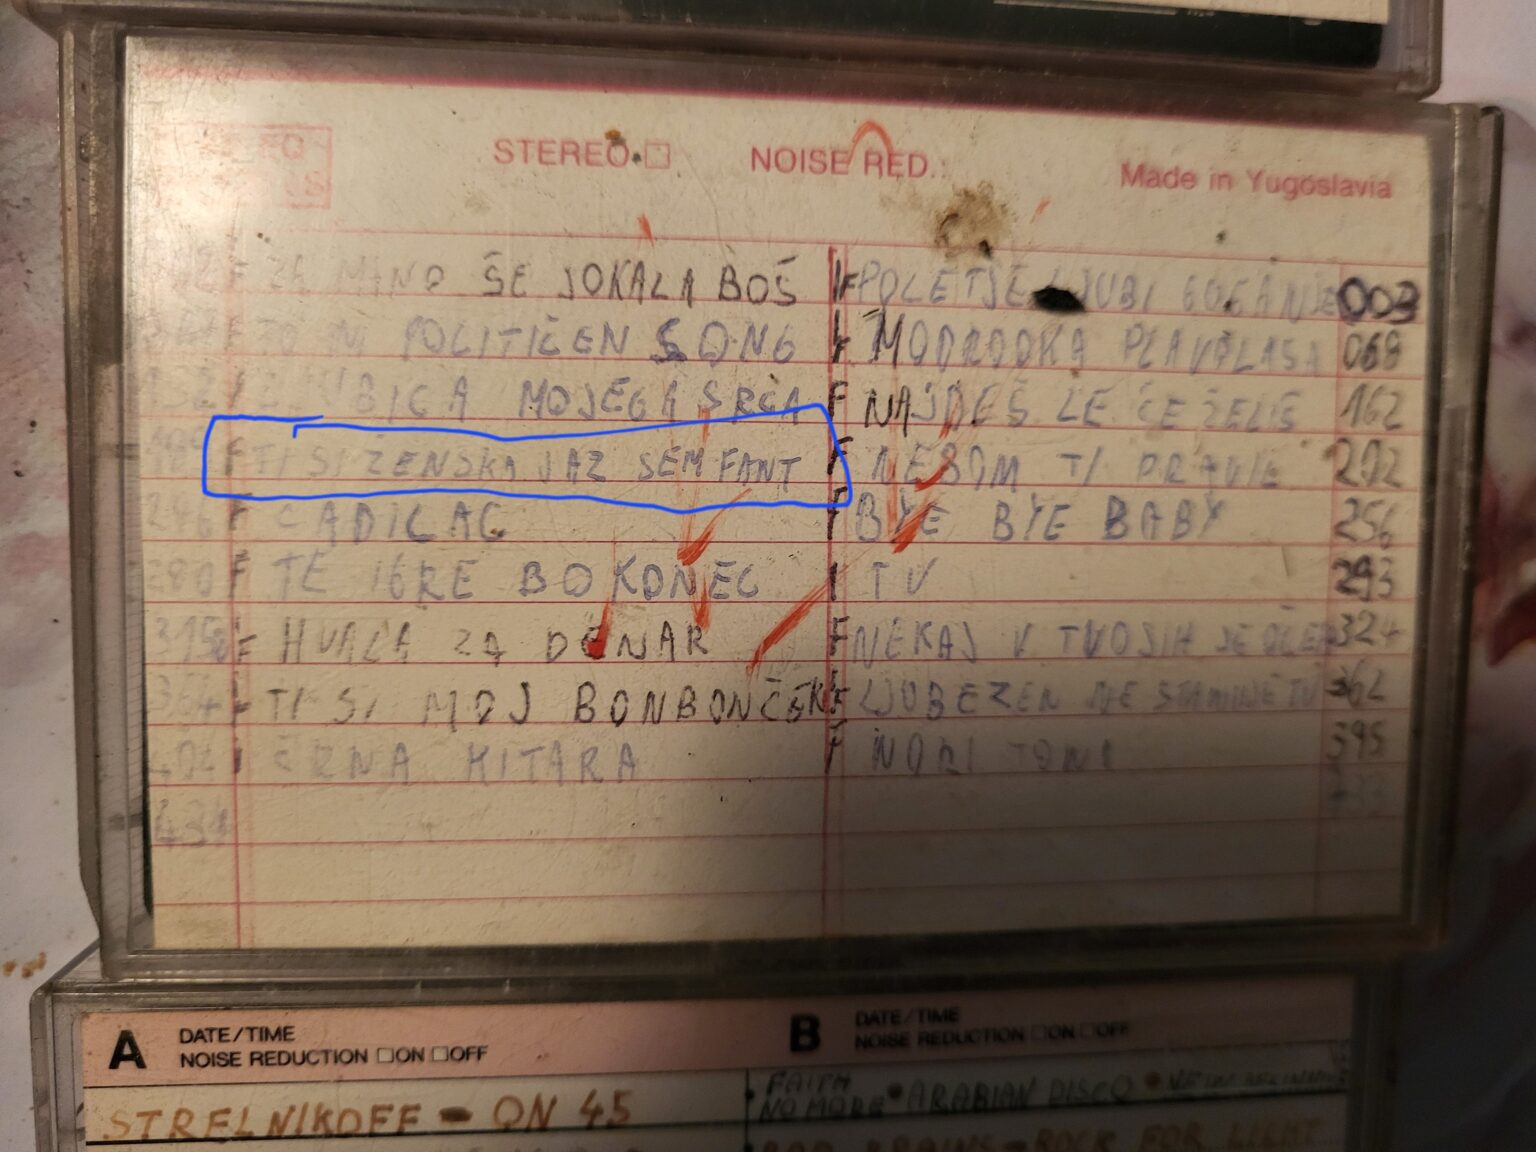 STEREO
NOISE RED.:
Made in Yugoslavia
F ZA MANO ŠE JOKALA BOŠ
F TO NI POLITIČEN SONG
MOJEGA SRCA
F TI SI ŽENSKA JAZ SEM FANT
246 F CADILAC
280 F TE IGRE BO KONEC
315 F HVALA ZA DENAR
364 F TI SI MOJ BONBONČEK
404 ČRNA KITARA
431
F POLETJE LJUBI 003
F MODROOKA PLAVOLASA 068
F NAJDEŠ LE ČE ŽELIŠ 162
F NEBOM TI PRAVIL 202
BYE BYE BABY 256
TV 293
F NEKAJ V TVOJIH JE OČEH 324
F LJUBEZEN NE 362
NORI TONI 395
A DATE/TIME
NOISE REDUCTION ON OFF
B DATE/TIME
NOISE REDUCTION ON OFF
STRELNIKOFF - ON 45
FAITH
NO MORE • ARABIAN DISCO •
ROCK FOR LIGHT